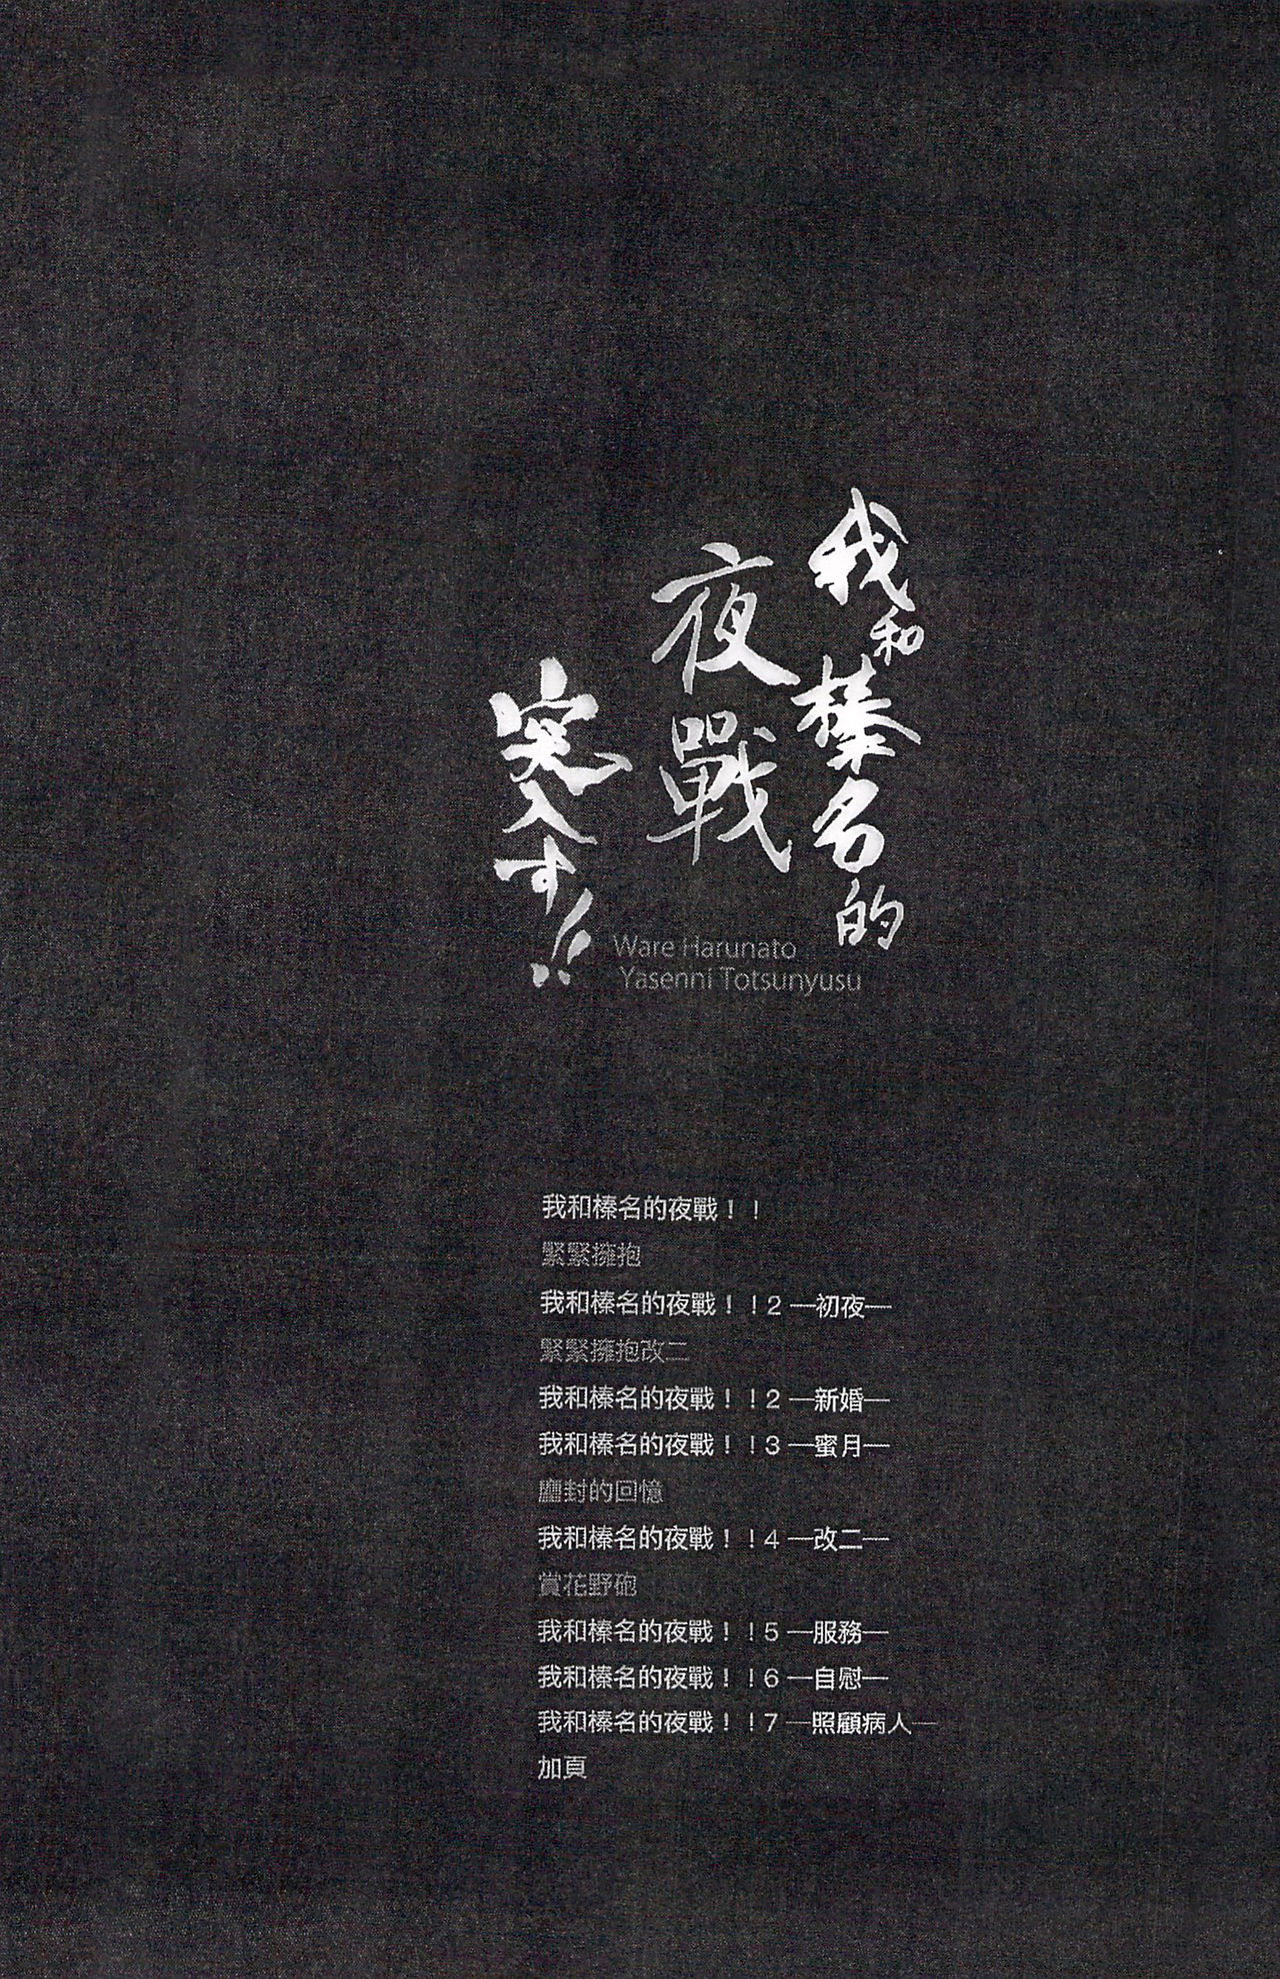 我和榛名的
夜戰
突入す!!
Ware Harunato
Yasenni Totsunyusu
我和榛名的夜戰！！
緊緊擁抱
我和榛名的夜戰！！2 —初夜—
緊緊擁抱改二
我和榛名的夜戰！！2 —新婚—
我和榛名的夜戰！！3 —蜜月—
塵封的回憶
我和榛名的夜戰！！4 —改二—
賞花野砲
我和榛名的夜戰！！5 —服務—
我和榛名的夜戰！！6 —自慰—
我和榛名的夜戰！！7 —照顧病人—
加頁